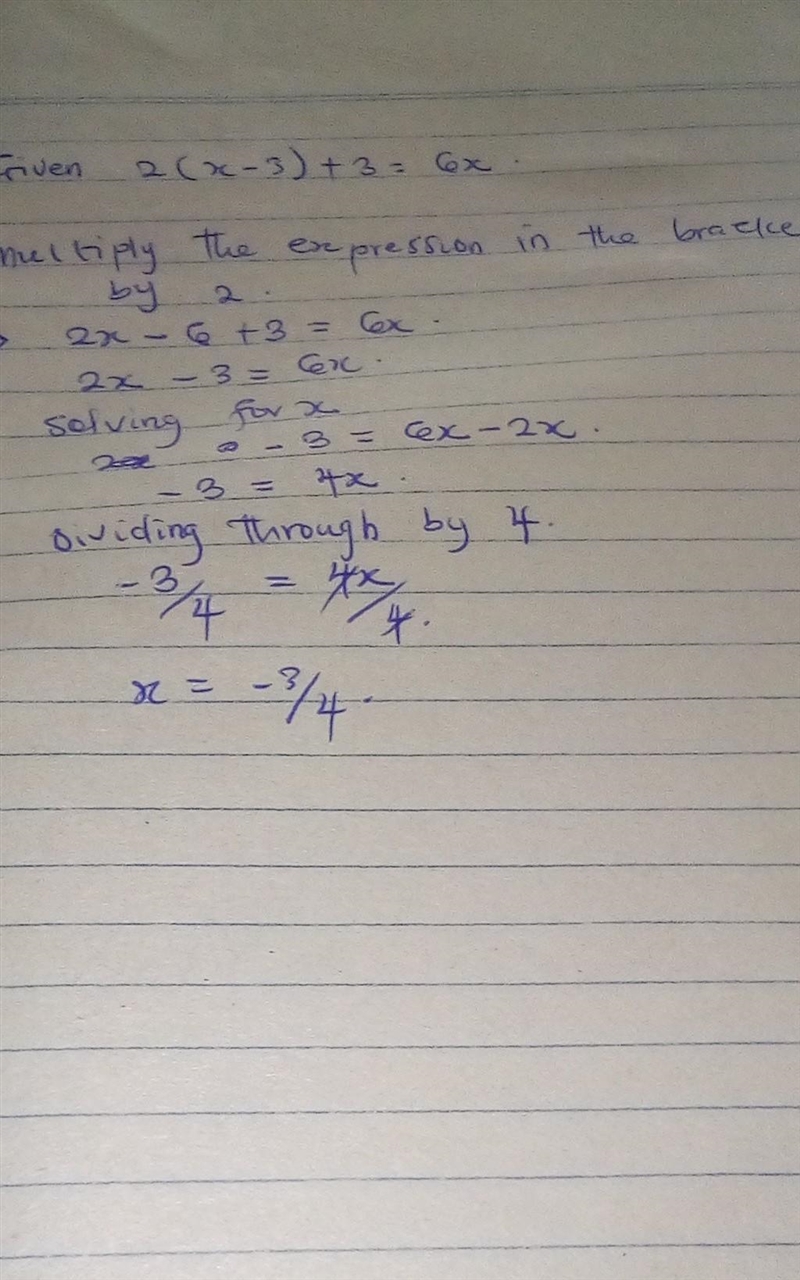 Given 2(x-3)+3 = 6x.
multiply the expression in the bracke
by 2.
2x - 6 + 3 = 6x.
2x - 3 = 6x.
solving for x
- 3 = 6x - 2x.
- 3 = 4x.
Dividing through by 4.
-3/4 = 4x/4.
x = -3/4.